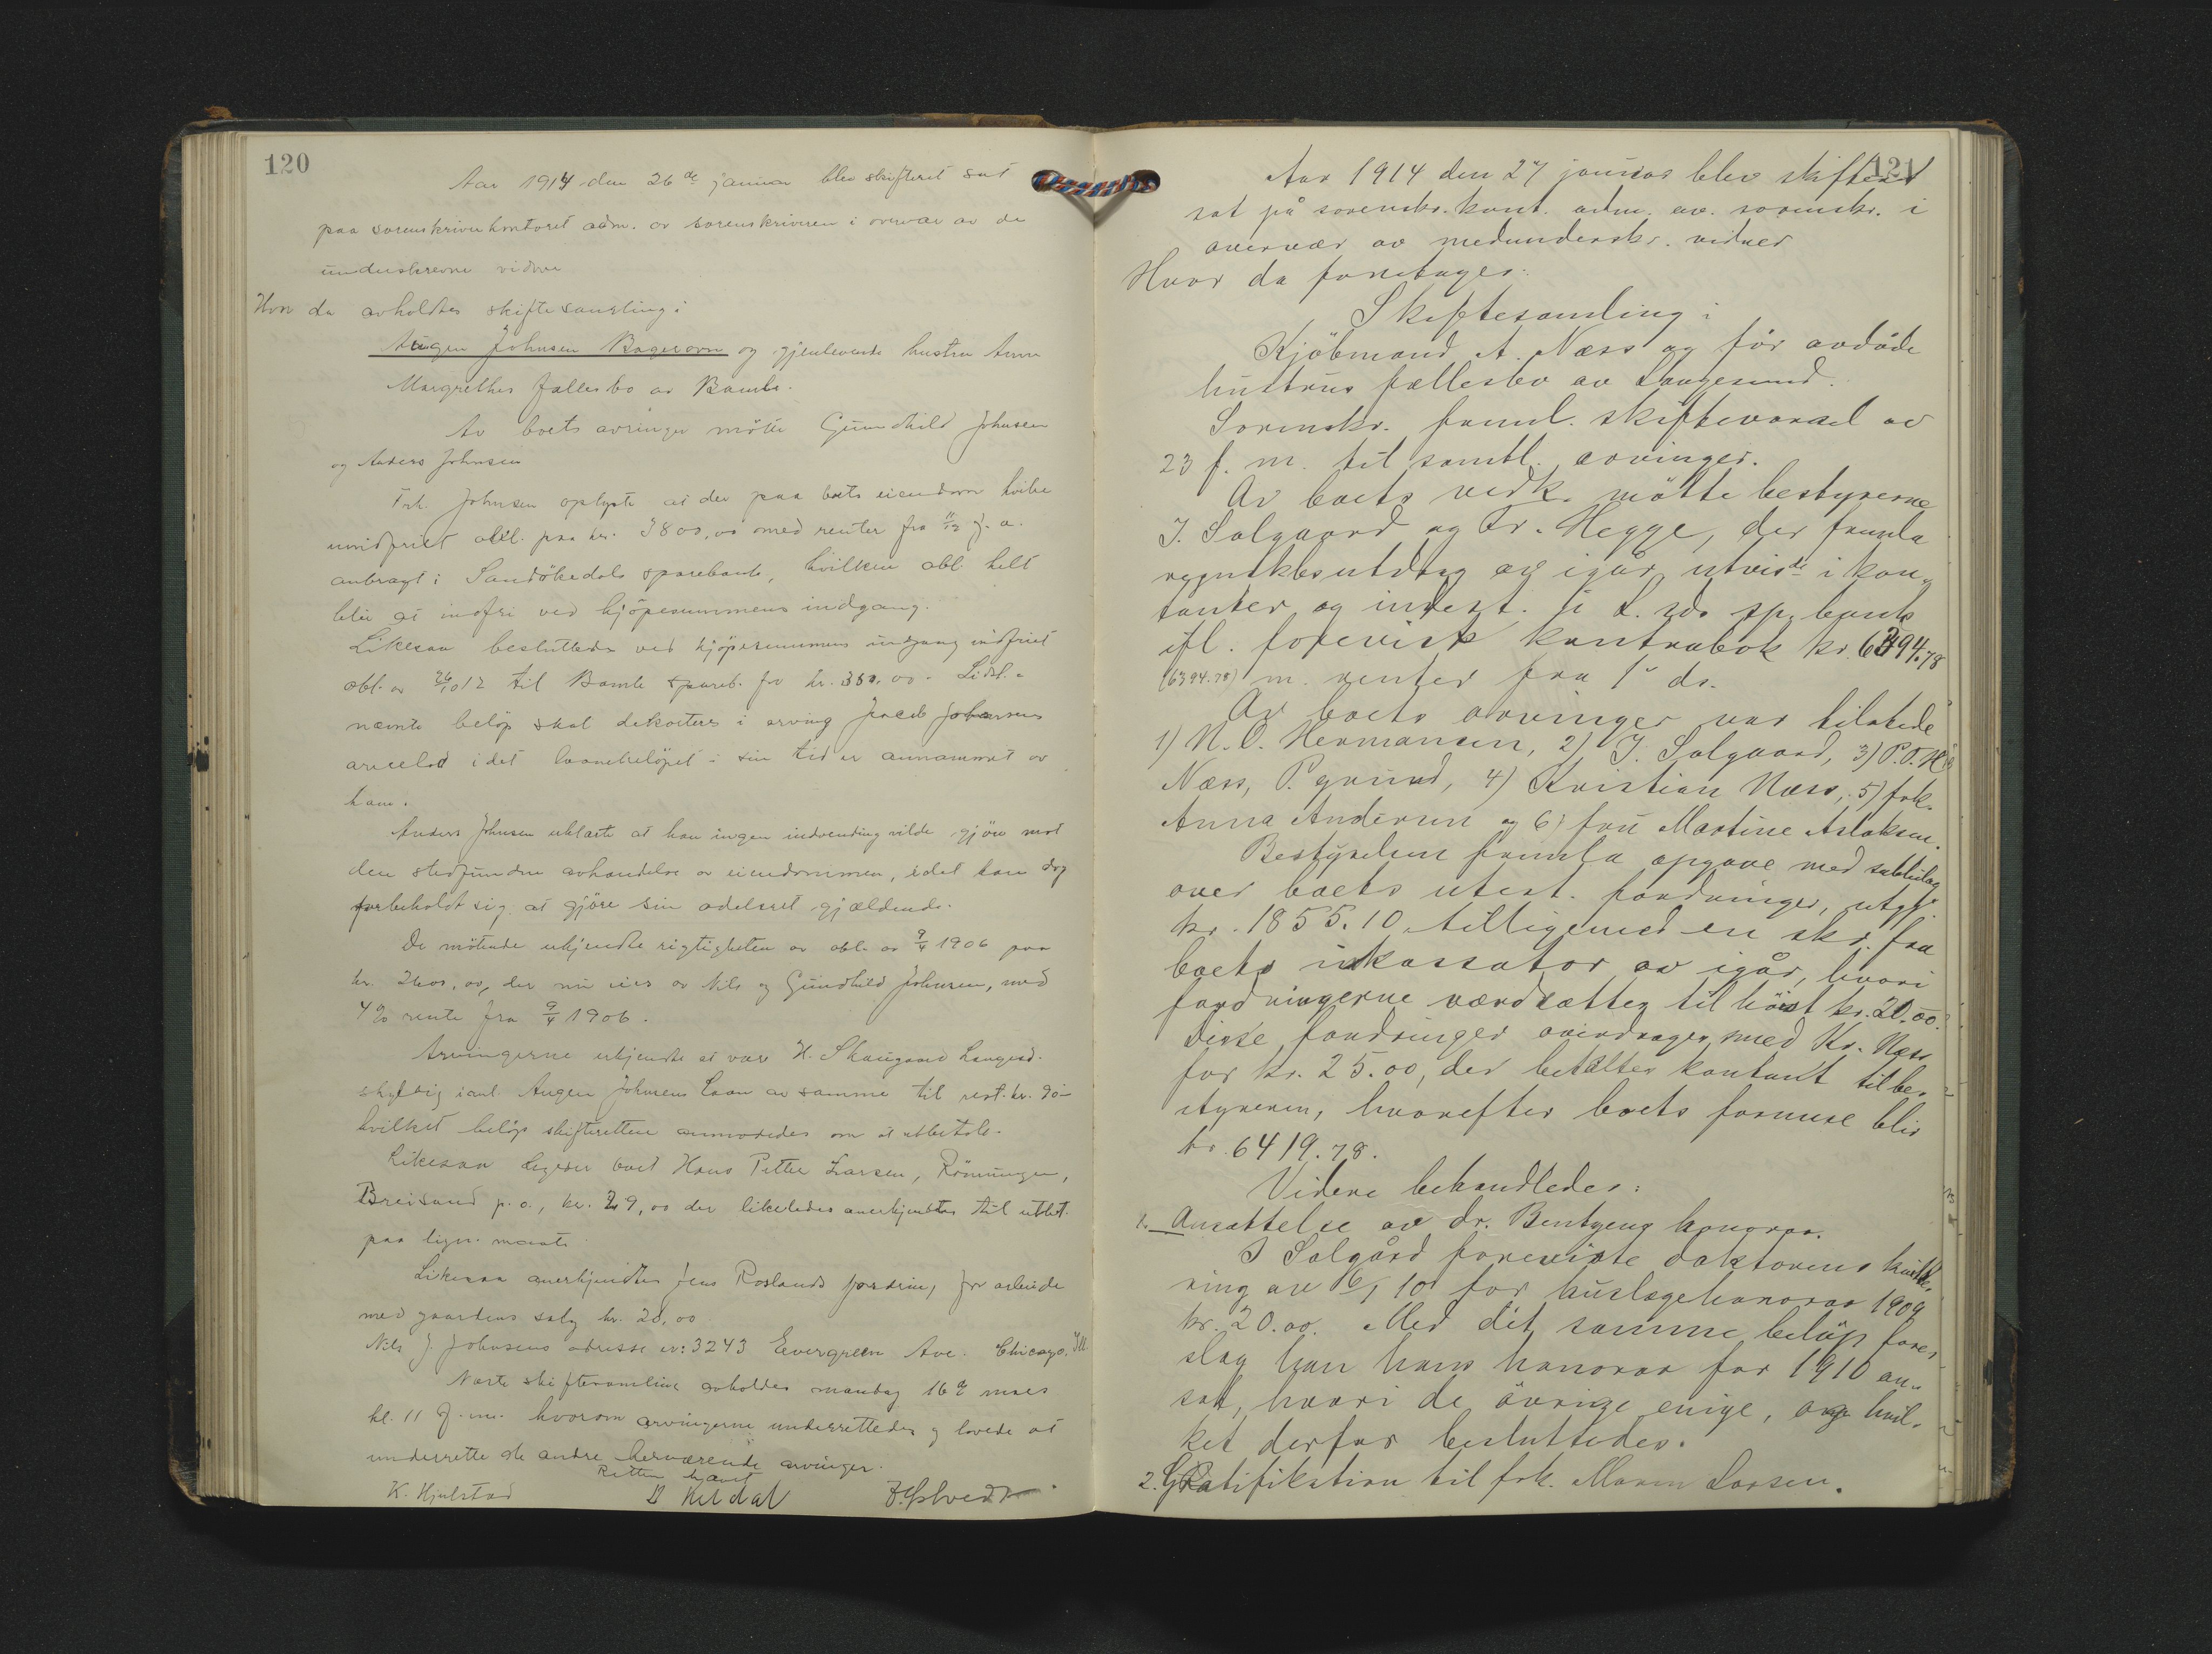 120
Aar 1914 den 26de januar blev skifteret sat
paa sorenskriverkontoret adm. av sorenskriveren i overvær av de
underskrevne vidner
Hvor da avholdtes skiftesamling i
Augen Johnsen Bageroven og gjenlevende hustru Anne
Margrethes fællesbo av Bamle.
Av boets arvinger mötte Gunhild Johnsen
og Anders Johnsen
Frk. Johnsen oplyste at der paa boets eiendom hviler
uindfriet obl. paa kr. 3800,00 med renter fra 11/12 f. a.
anbragt i Sandökedals sparebank, hvilken obl. helt
blir at indfri ved kjöpesummens indgang.
Likesaa besluttedes ved kjöpesummens indgang indfriet
obl. av 26/10 12 til Bamle spareb. for kr. 350.00. Sidst-
nævnte belöp skal dekorteres i arving Jacob Johnsens
arvelod idet laanebelöpet i sin tid er annammet av
ham.
Anders Johnsen erklærte at han ingen indvending vilde gjöre mot
den stedfundne avhændelse av eiendommen, idet han dog
forbeholdt sig at gjöre sin odelsret gjældende.
De mötende erkjendte rigtigheten av obl. av 9/4 1906 paa
kr. 2600,00, der nu eies av Nils og Gunhild Johnsen, med
4% rente fra 9/4 1906.
Arvingerne erkjendte at være H. Skaugaard Langesd.
skyldig i anl. Augen Johnsens Laan av samme til rest. kr. 90-
hvilket belöp skifteretten anmodedes om at utbetale.
Likesaa skylder boet Hans Petter Larsen, Rönningen,
Breisand p. o., kr. 29,00 der likeledes anerkjendtes til utbet.
paa lign. maate.
Likesaa anerkjendtes Jens Roslands fordring for arbeide
med gaardens salg kr. 20,00
Nils J. Johnsens adresse er: 3243 Evergreen Ave. Chicago. Ill.
Næste skiftesamling avholdes mandag 16de mars
kl. 11 f. m. hvorom arvingerne underrettedes og lovede at
underrette de andre herværende arvinger.
Retten hævet
K. Hjulstad
121
Aar 1914 den 27 januar blev skifteret
sat på sorenskr. kont. adm. av. sorenskr. i
overvær av medunderskr. vidner
Hvor da foretages:
Skiftesamling i
Kjöbmand A. Næss og för avdöde
hustrus fællesbo av Langesund.
Sorenskr. freml. skiftevarsel av
23 f. m. til samtl. arvinger.
Av boets vedk. mötte bestyrerne
J. Salgaard og Fr. Hegge, der fremla
regnskbsutdrag av igår, utvisde i kon-
tanter og indest. i L. sds sp. bank
ifl. forevist kontrabok kr. 6394.78
(6394.78) m. renter fra 1' ds.
Av boets arvinger var tilstede
1) N. O. Hermansen, 2) J. Salgaard, 3) P. T. H.
Næss, P.grund, 4) Kristian Næss, 5) frk.
Anna Andersen og 6) fru Martine Aslaksen.
Bestyrelsen fremla opgave med
over boets utest. fordringer, utgj.
kr. 1855.10 tilligemed en skr. fra
boets inkassator av igår, hvori
fordringerne værdsættes til höist kr. 20.00.
Disse fordringer overdrages med Kr. Næss
for kr. 25.00, der betaltes kontant til be-
styreren, hvorefter boets formue blir
kr. 6419.78.
Videre behandledes:
1. Ansættelse av dr. Bentzens honorar.
J Salgård foreviste doktorens kvitte-
ring av 6/1 10 for huslægehonorar 1909
kr. 20.00. Med det samme belöp fore-
slog han hans honorar for 1910 an-
sat, hvori de övrige enige, og hvil-
ket derfor besluttedes.
2. Gratifikation til frk. Maren Larsen.